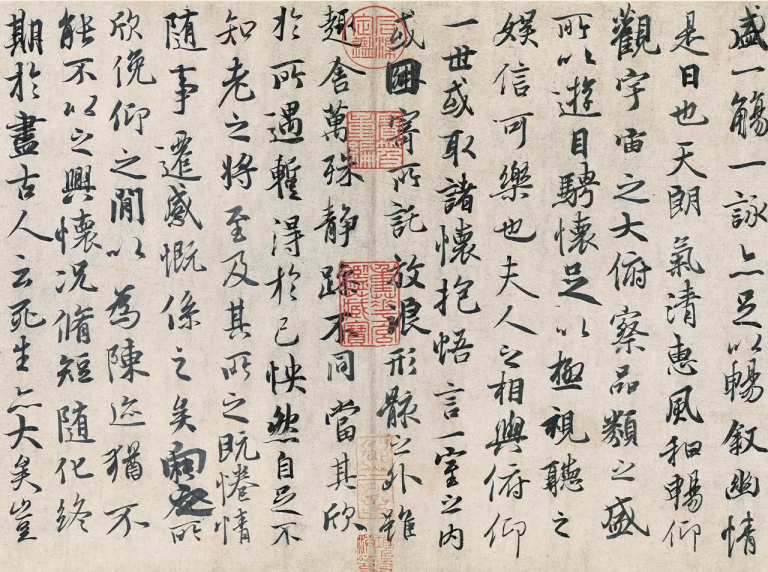 盛一觴一詠亦足以暢叙幽情
是日也天朗氣清惠風和暢仰
觀宇宙之大俯察品類之盛
所以遊目騁懷足以極視聽之
娛信可樂也夫人之相與俯仰
一世或取諸懷抱悟言一室之内
或因寄所託放浪形骸之外雖
趣舍萬殊静躁不同當其欣
於所遇暫得於己怏然自足不
知老之將至及其所之既惓情
隨事遷感慨係之矣向之所
欣俛仰之閒以為陳迹猶不
能不以之興懷况脩短隨化終
期於盡古人云死生亦大矣豈